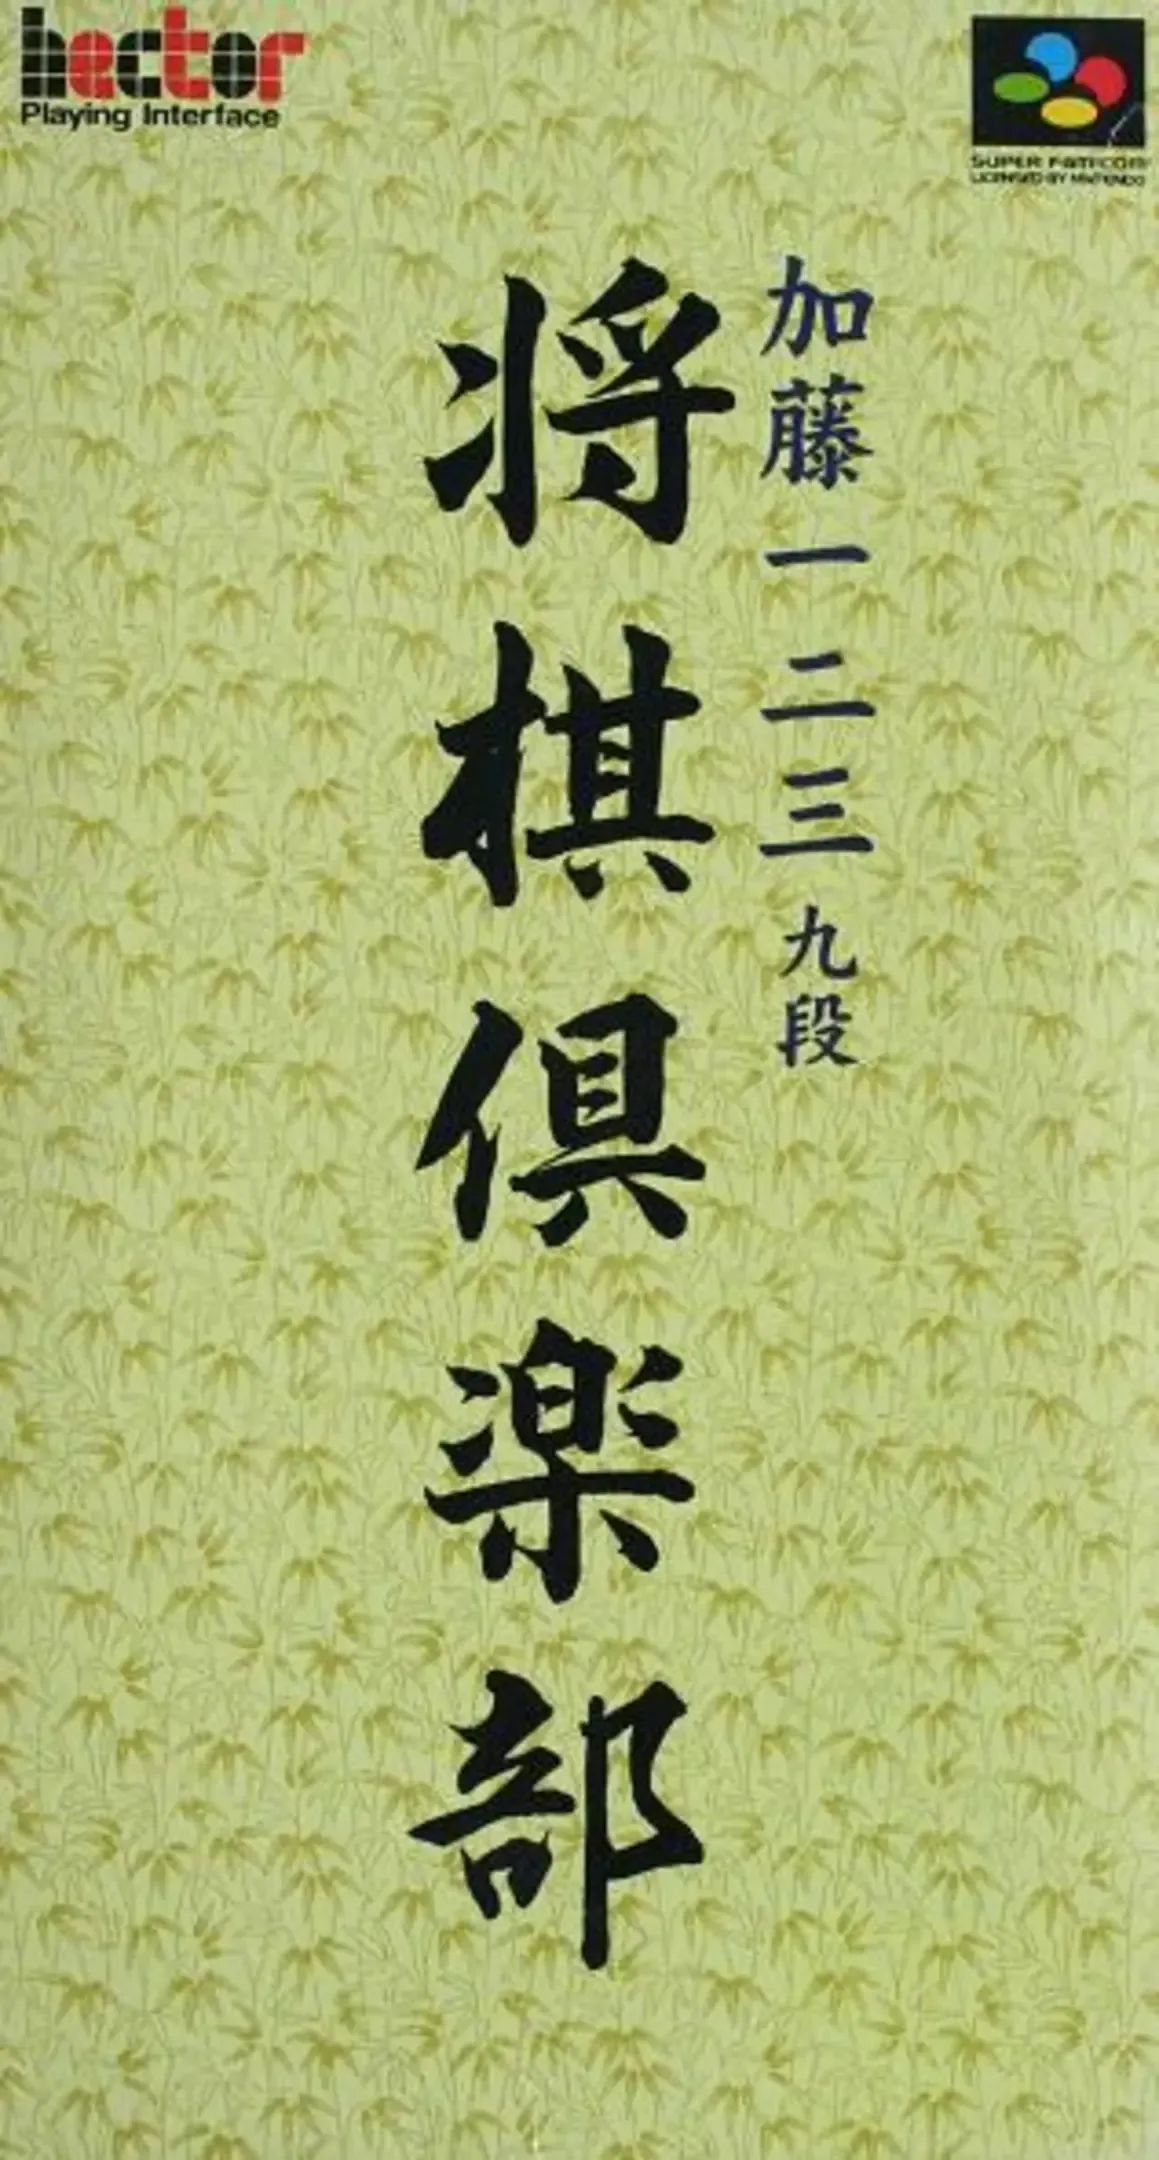 hector
Playing Interface
SUPER FAMICOM
LICENSED BY NINTENDO
加藤一二三 九段
将棋倶楽部